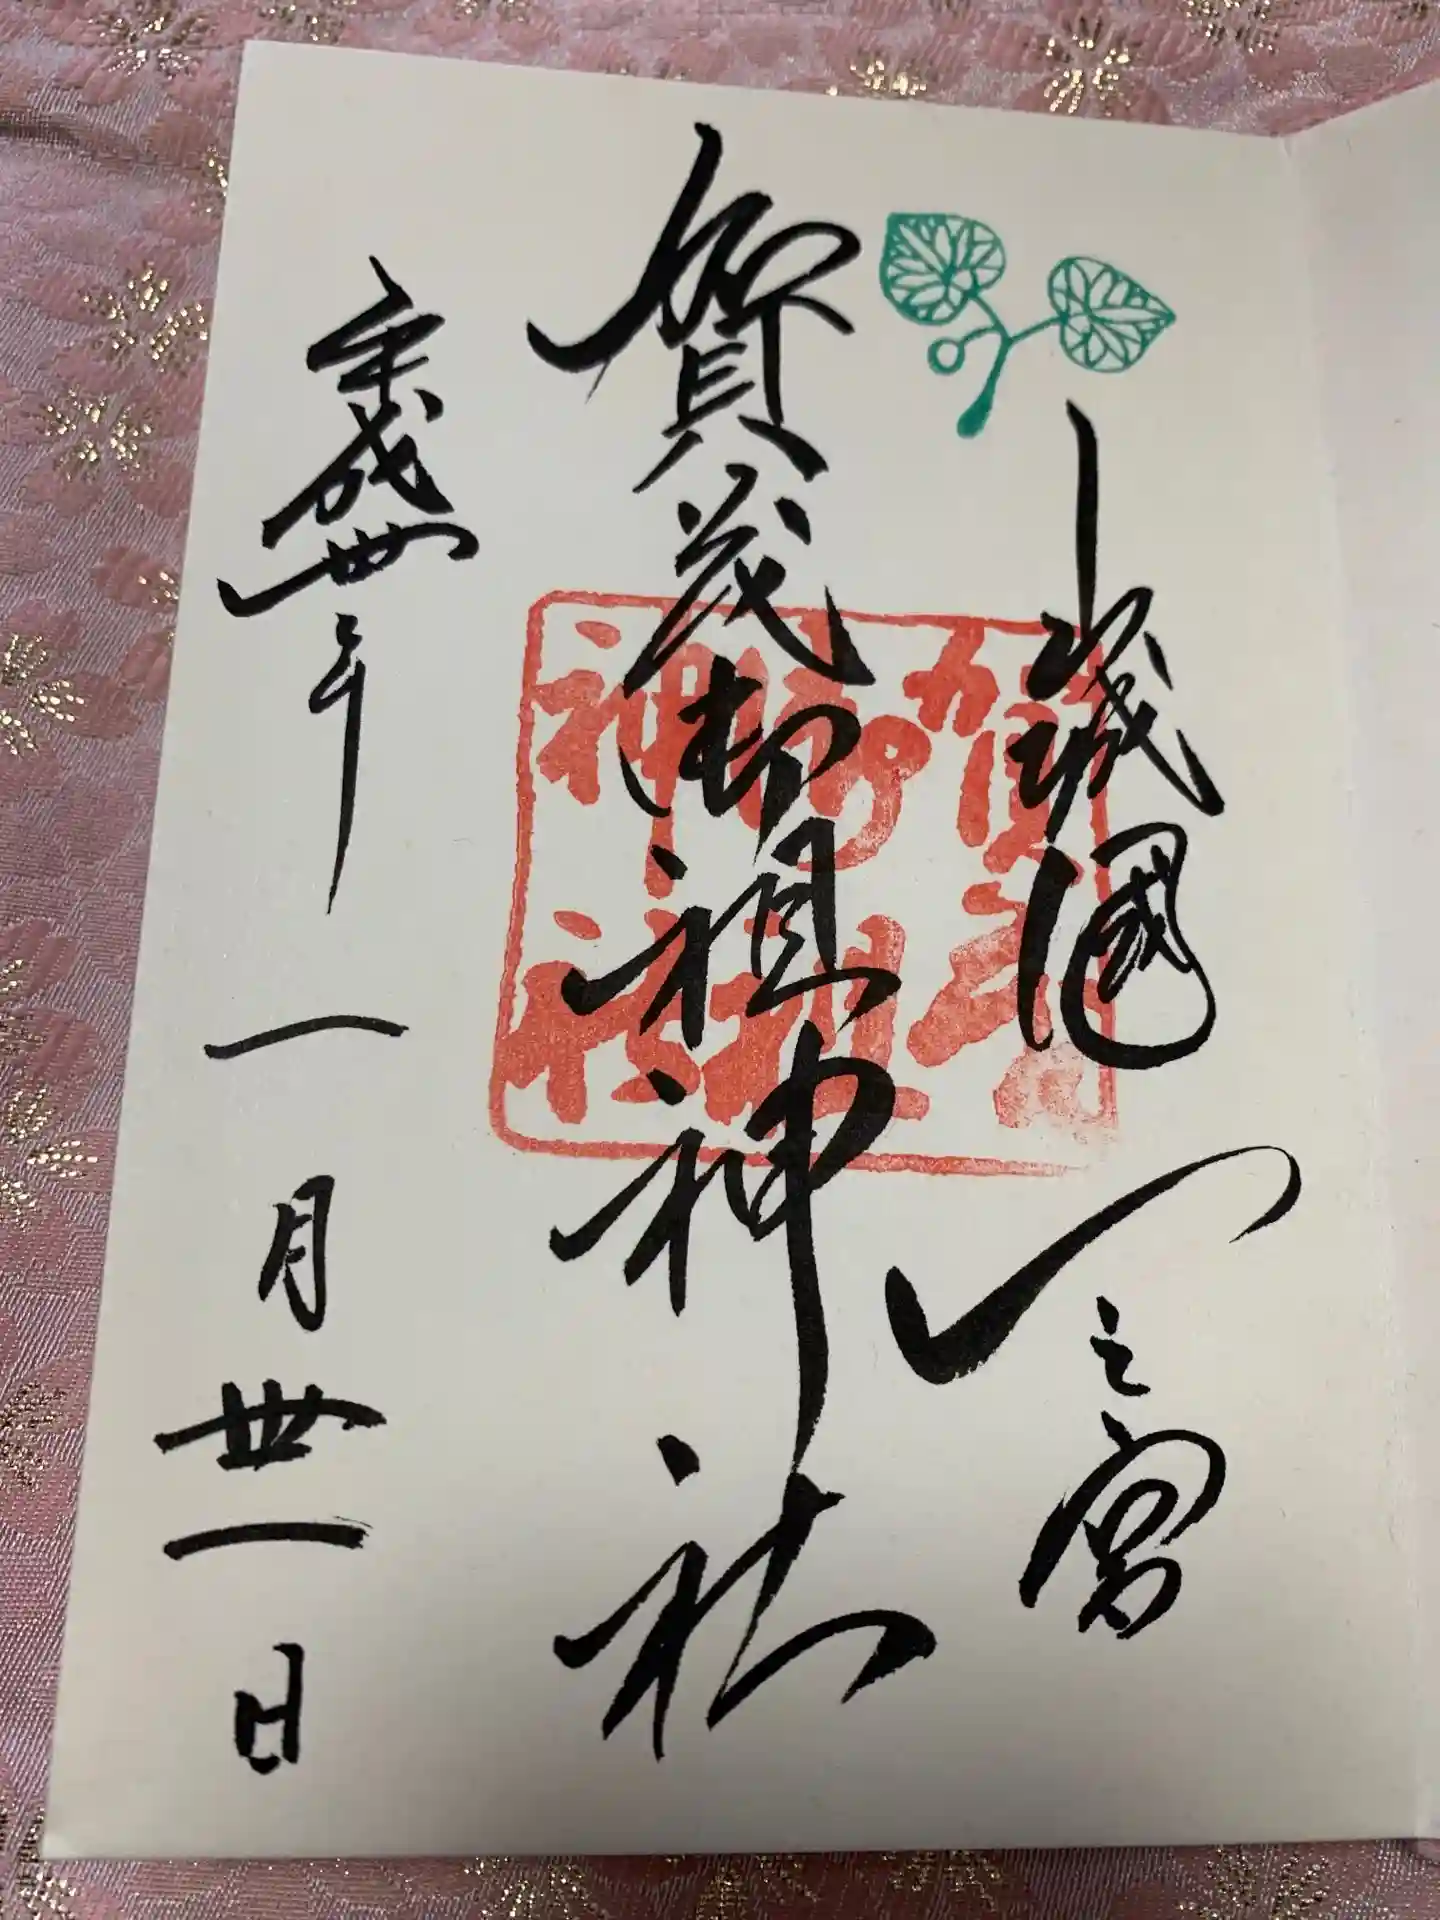 山城國一之宮
賀茂御祖神社
平成丗年一月丗一日
賀茂
御祖
神社